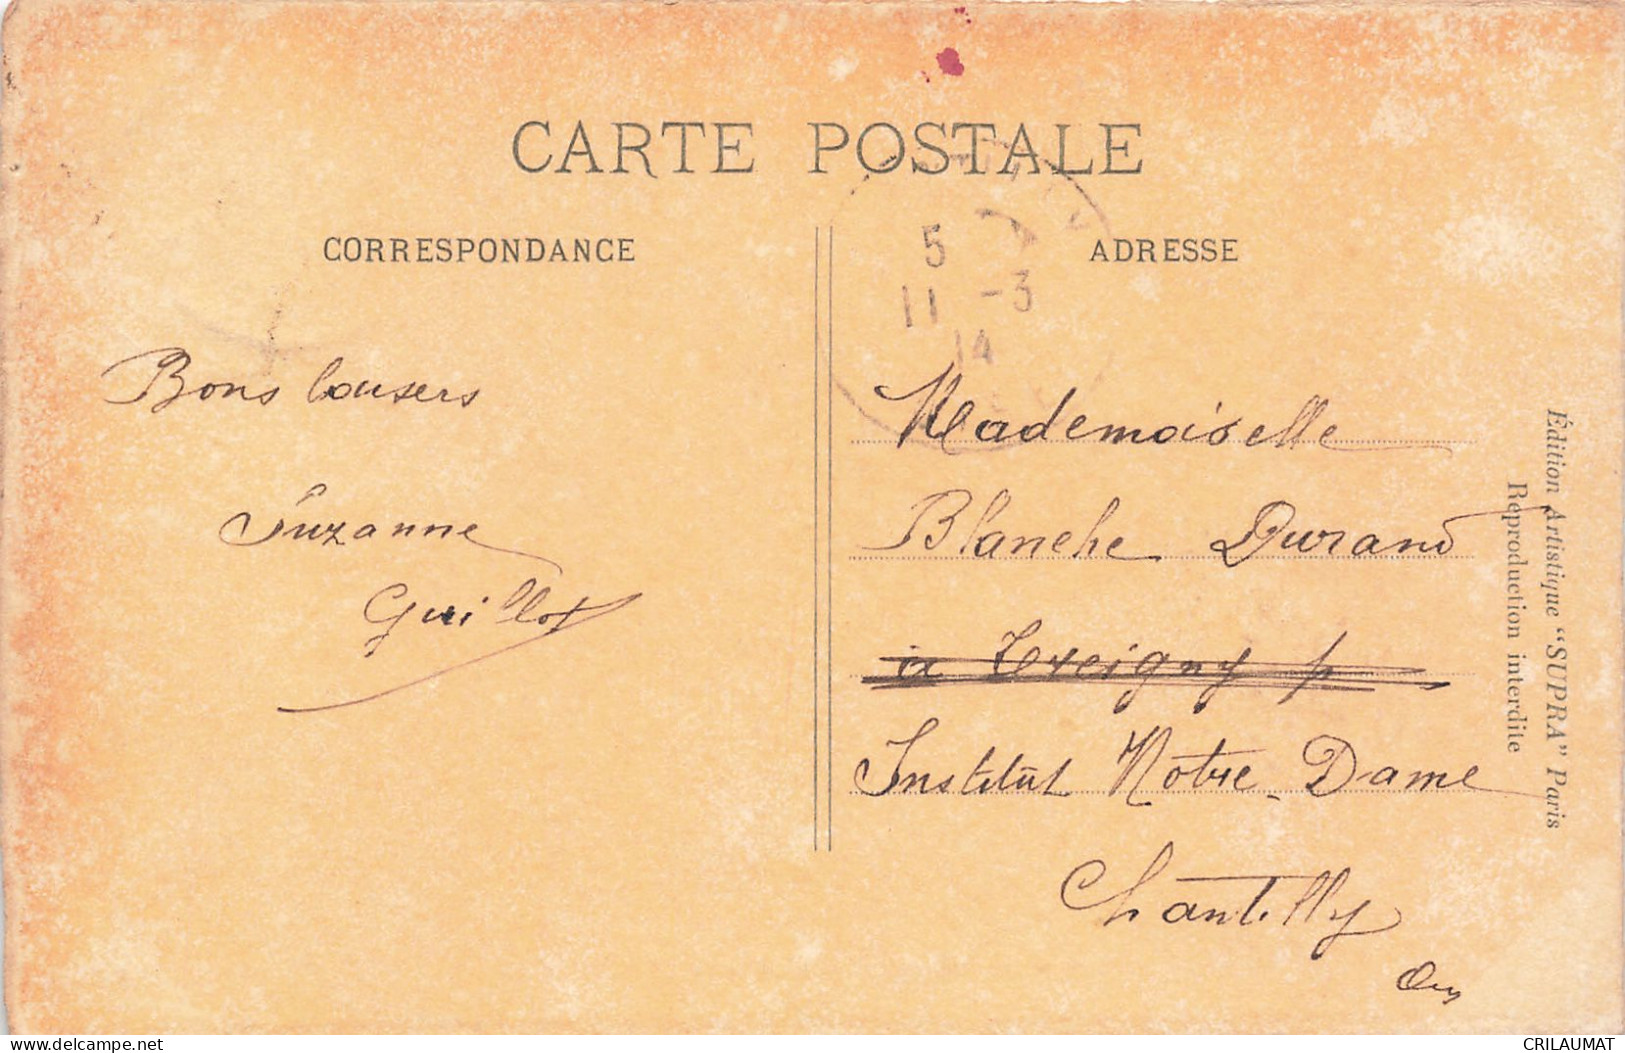 CARTE POSTALE
CORRESPONDANCE
ADRESSE
5
11 -3
14
Bons baisers
Suzanne
Guillot
Mademoiselle
Blanche Durand
à Treigny p
Institut Notre-Dame
Chantilly
Oise
Édition Artistique "SUPRA" Paris
Reproduction interdite
www.delcampe.net
CRILAUMAT